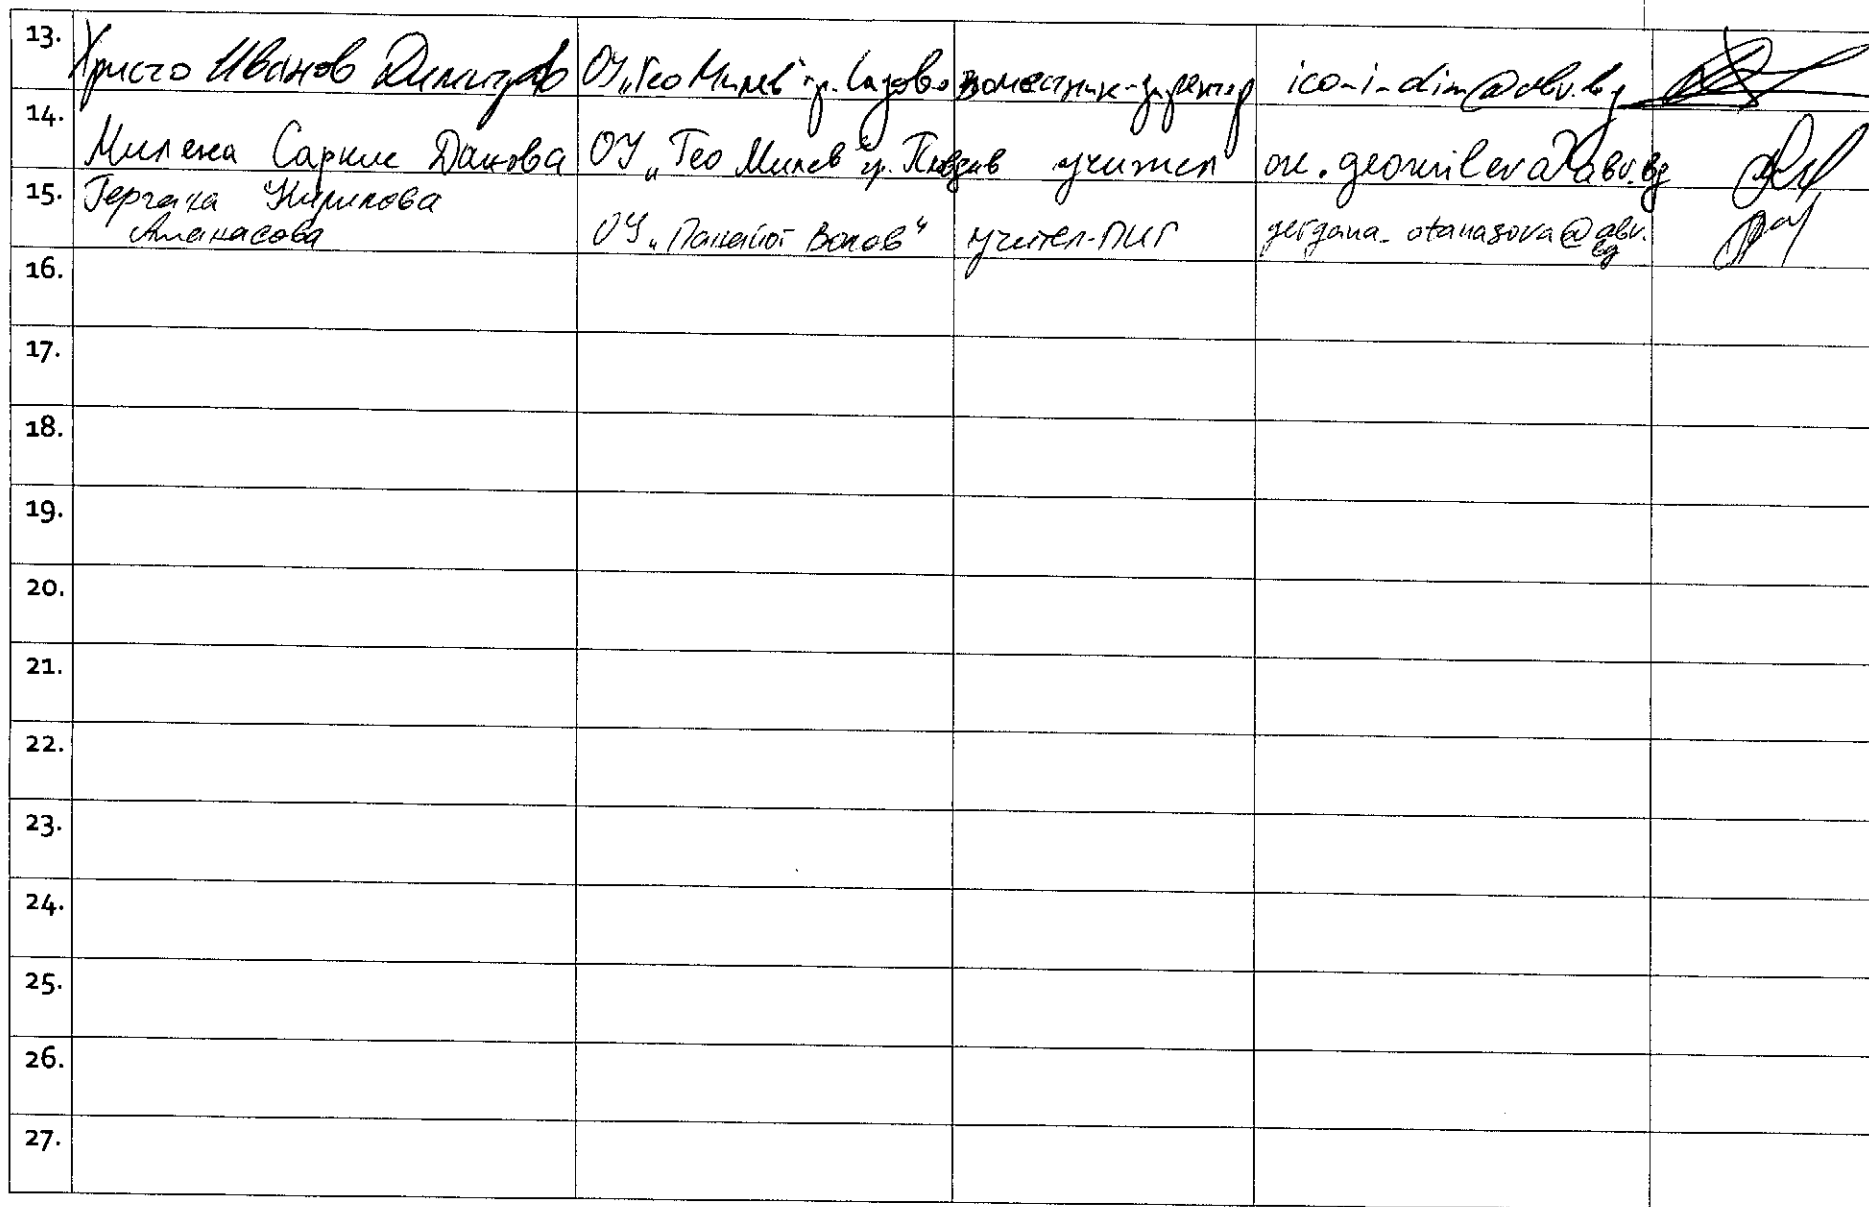 13. Христо Иванов Димитров ОУ „Гео Милев" гр. Садово заместник-директор ico-i-dim@abv.bg
14. Милена Саркис Данова ОУ „Гео Милев" гр. Пловдив учител ou.geomilev@abv.bg
15. Гергана Кирилова
Атанасова ОУ „Панайот Волов" учител-ПИГ gergana_atanasova@abv.
bg
16.
17.
18.
19.
20.
21.
22.
23.
24.
25.
26.
27.